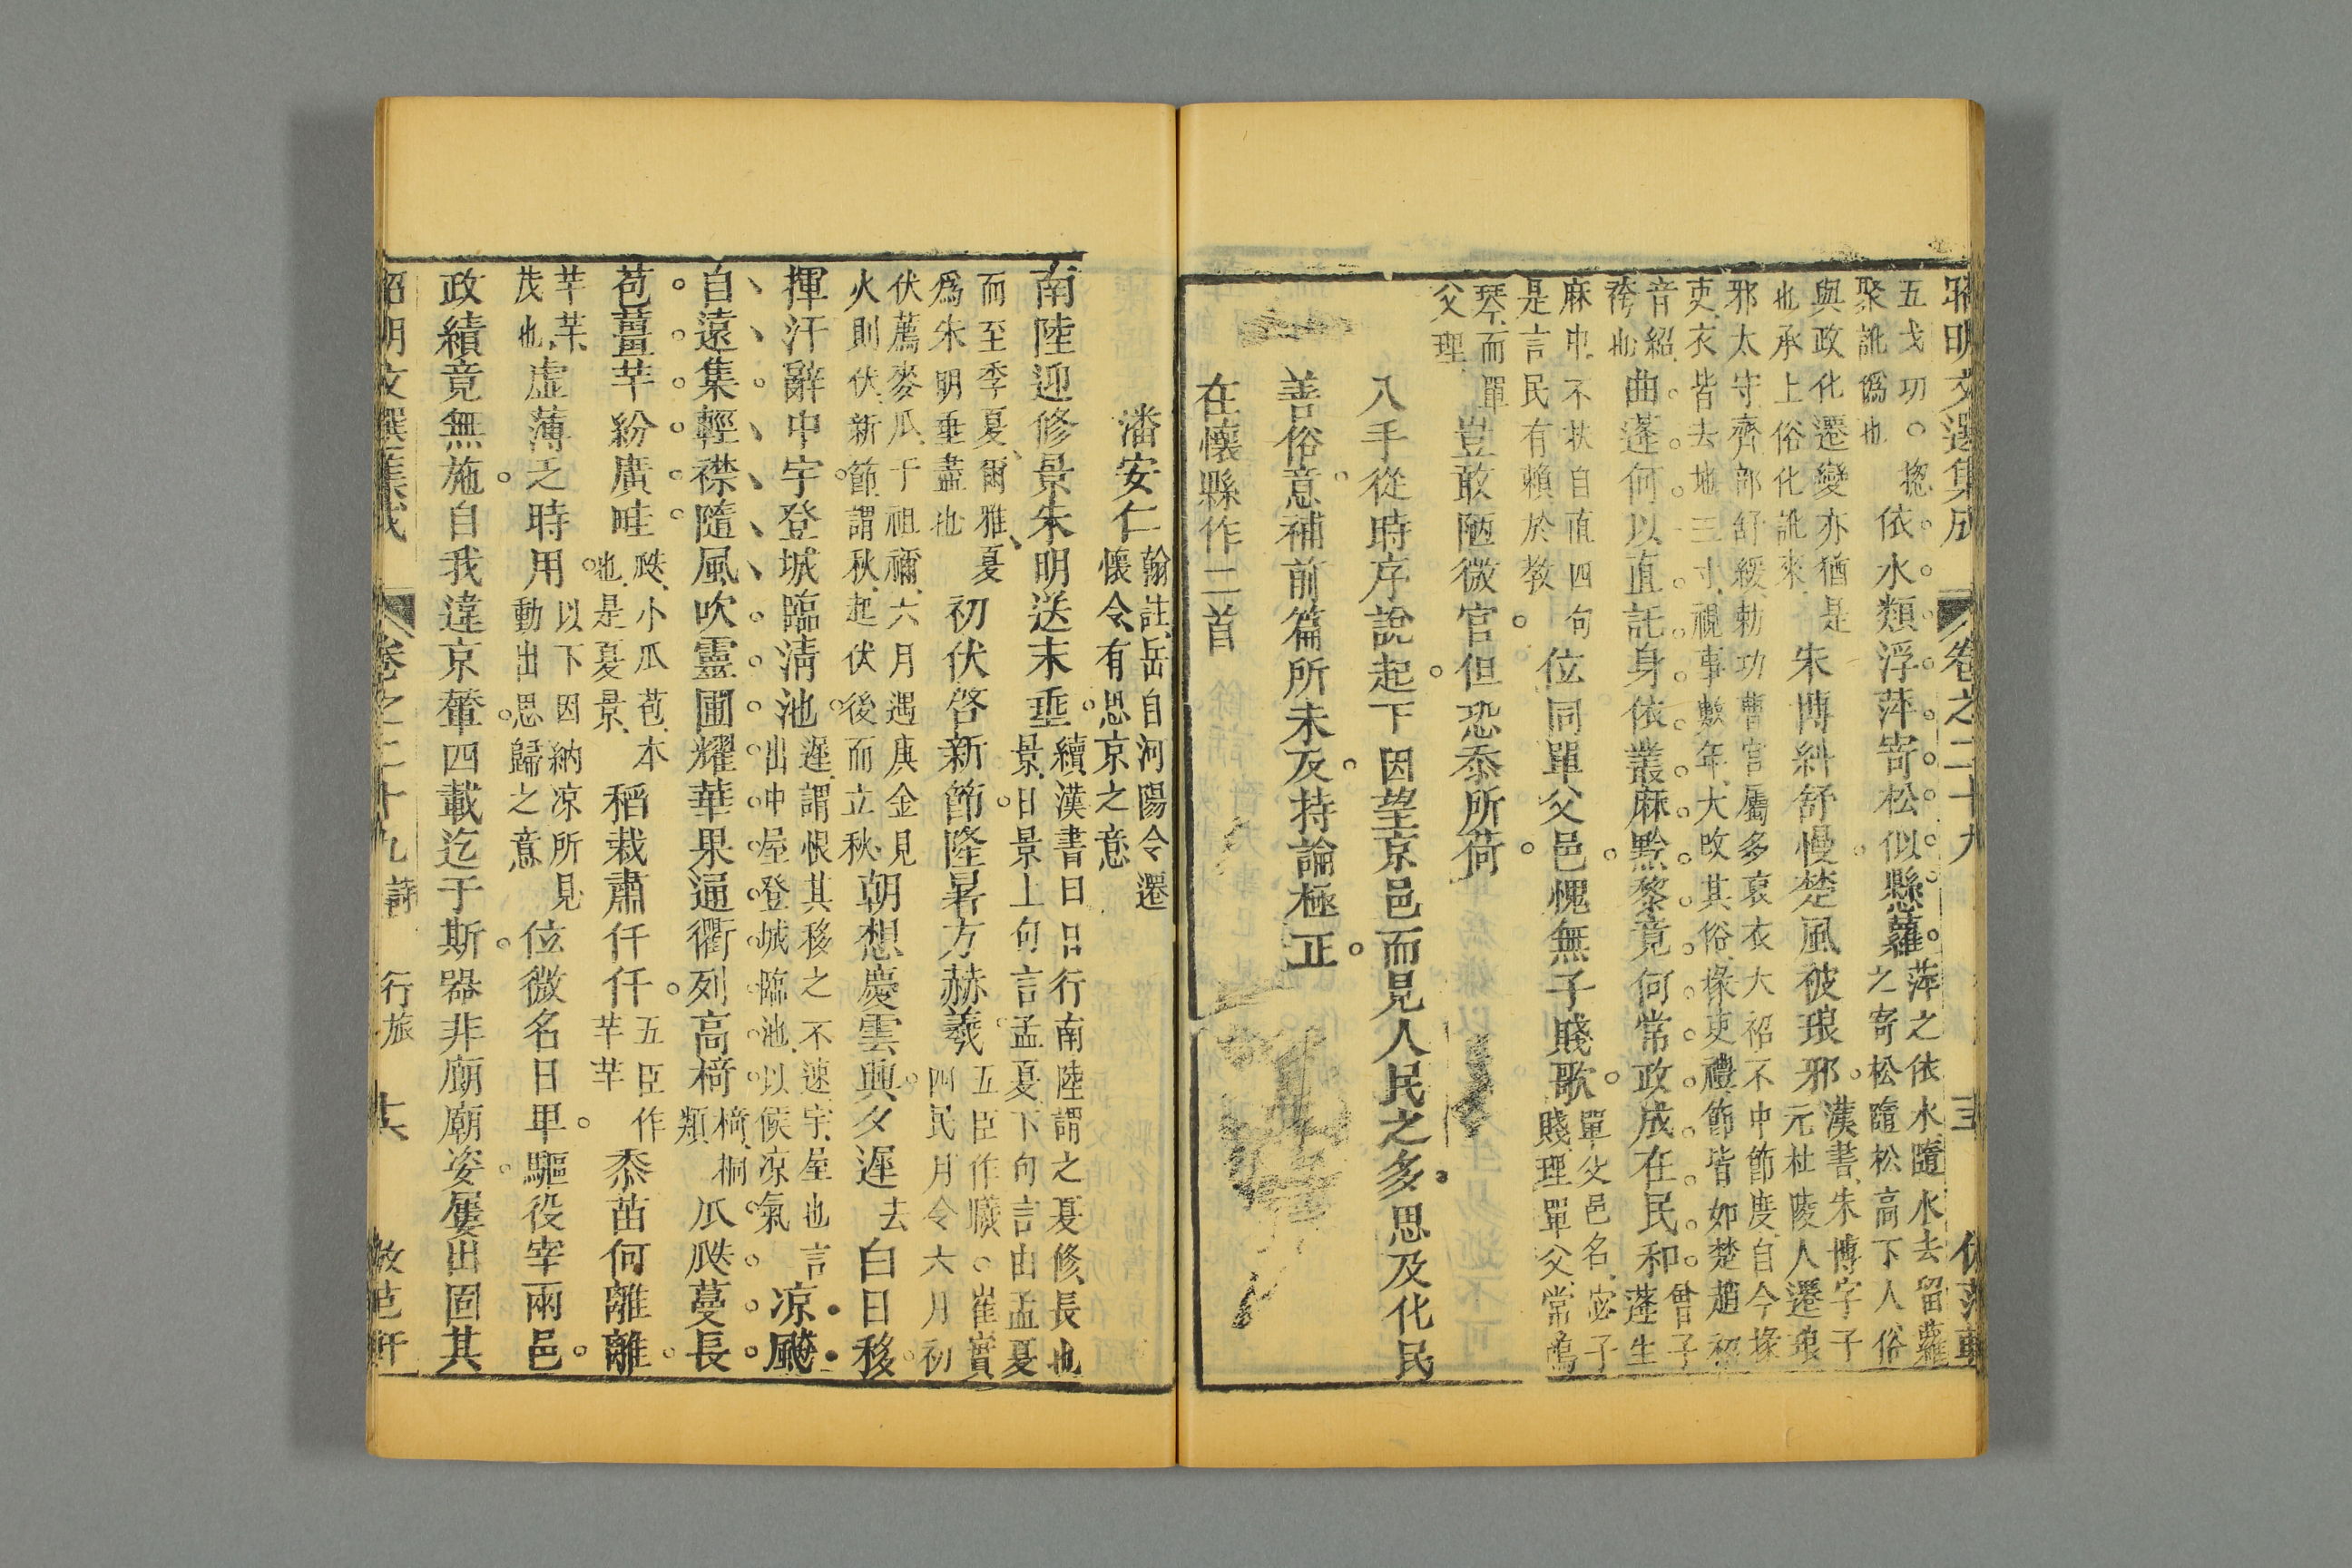 昭明文選集成 卷之二十九
五戈切。揔
聚訛僞也
依水類浮萍寄松似懸蘿
萍之依水隨水去留蘿
之寄松隨松高下人俗
與政化遷變亦猶是
也承上俗化訛來
朱博糾舒慢楚風被琅邪
漢書朱博字子
元杜陵人遷琅
邪太守齊部舒緩勅功曹官屬多裒衣大袑不中節度自今掾
吏衣皆去地三寸視事數年大改其俗掾吏禮節皆如楚趙袑
音紹
袴也
曲蓬何以直託身依叢麻黔黎竟何常政成在民和
曾子
蓬生
麻中不扶自直四句
是言民有賴於教
位同單父邑愧無子賤歌
單父邑名宓子
賤理單父常鳴
琴而單
父理
豈敢陋微官但恐忝所荷
入手從時序說起下因望京邑而見人民之多思及化民
善俗意補前篇所未及持論極正
在懷縣作二首
潘安仁
翰註岳自河陽令遷
懷令有思京之意
南陸迎修景朱明送末垂
續漢書日日行南陸謂之夏修長也
景日景上句言孟夏下句言由孟夏
而至季夏爾雅夏
爲朱明垂盡也
初伏啓新節隆暑方赫羲
五臣作曦。崔寔
四民月令六月初
伏薦麥瓜于祖禰六月遇庚金見
火則伏新節謂秋起伏後而立秋
朝想慶雲興夕遲去白日移
揮汗辭中宇登城臨清池
遲謂恨其移之不速宇屋也言
出中屋登城臨池以候凉氣
凉飈
自遠集輕襟隨風吹靈圃耀華果通衢列高椅
椅桐
類
瓜瓞蔓長
苞薑芋紛廣畦
瓞小瓜苞本
也是夏景
稻栽肅仟仟
五臣作
芊芊
黍苗何離離
芊芊
茂也
虛薄乏時用
以下因納凉所見
動出思歸之意
位微名日卑驅役宰兩邑
政績竟無施自我違京輦四載迄于斯器非廊廟姿屢出固其
昭明文選集成 卷之二十九 詩 行旅 敚芭軒